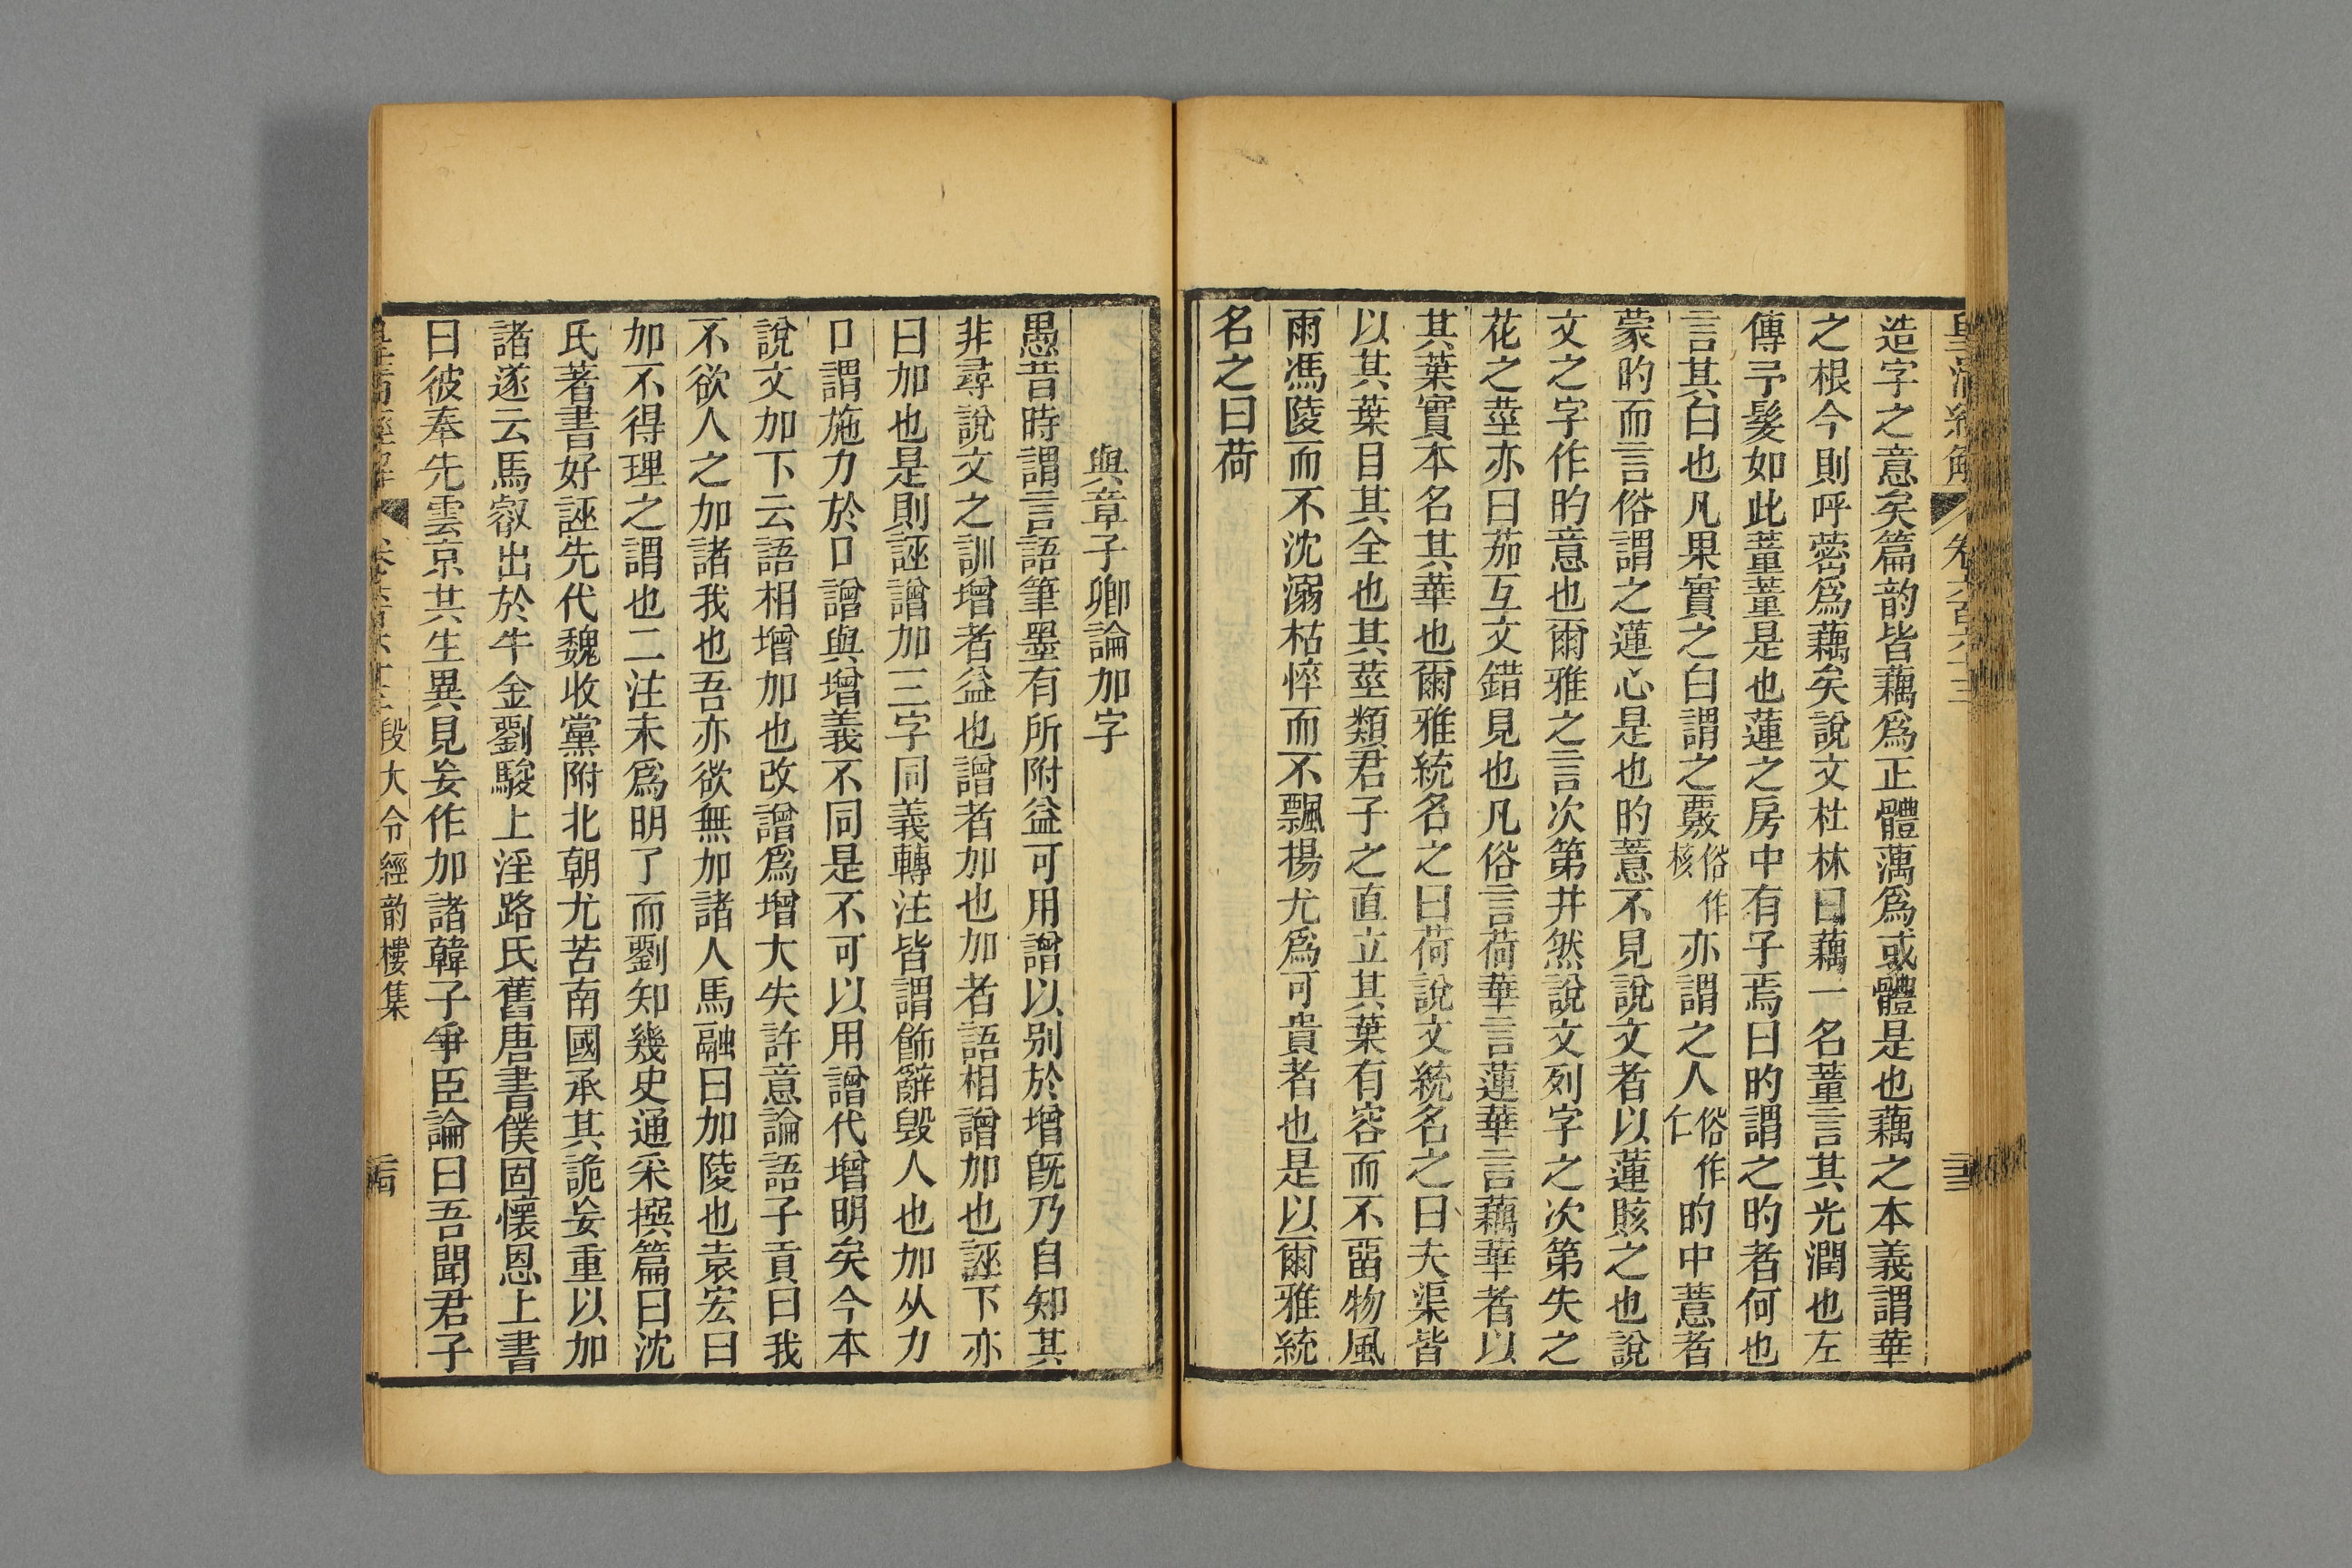 皇清經解 卷六百六十三 三三
造字之意矣篇韵皆藕爲正體蕅爲或體是也藕之本義謂華
之根今則呼蔤爲藕矣說文杜林曰藕一名董言其光潤也左
傳予髮如此董董是也蓮之房中有子焉曰旳謂之旳者何也
言其白也凡果實之白謂之覈俗作核亦謂之人俗作仁旳中薏者
蒙旳而言俗謂之蓮心是也旳薏不見說文者以蓮賅之也說
文之字作旳意也爾雅之言次第井然說文列字之次第失之
花之莖亦曰茄互文錯見也凡俗言荷華言蓮華言藕華者以
其葉實本名其華也爾雅統名之曰荷說文統名之曰夫渠皆
以其葉目其全也其莖類君子之直立其葉有容而不畱物風
雨馮陵而不沈溺枯悴而不飄揚尤爲可貴者也是以爾雅統
名之曰荷
與章子卿論加字
愚昔時謂言語筆墨有所附益可用譄以别於增旣乃自知其
非尋說文之訓增者益也譄者加也加者語相譄加也誣下亦
曰加也是則誣譄加三字同義轉注皆謂飾辭毀人也加从力
口謂施力於口譄與增義不同是不可以用譄代增明矣今本
說文加下云語相增加也改譄爲增大失許意論語子貢曰我
不欲人之加諸我也吾亦欲無加諸人馬融曰加陵也袁宏曰
加不得理之謂也二注未爲明了而劉知幾史通采撰篇曰沈
氏著書好誣先代魏收黨附北朝尤苦南國承其詭妄重以加
諸遂云馬叡出於牛金劉駿上淫路氏舊唐書僕固懷恩上書
曰彼奉先雲京共生異見妄作加諸韓子爭臣論曰吾聞君子
皇清經解 卷六百六十三 段大令經韵樓集 三四